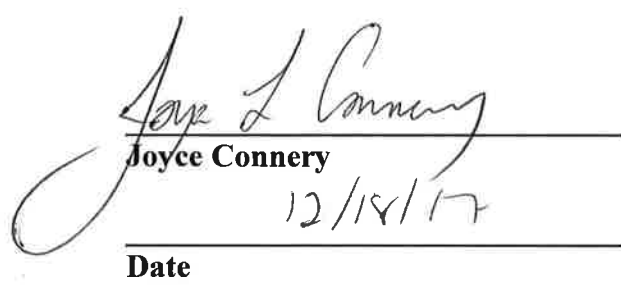 Joyce L Connery
Joyce Connery
12/18/17
Date